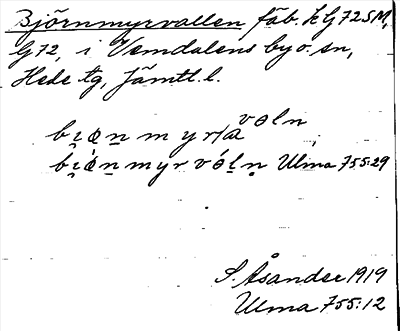 Björnmyrvallen fäb. k G 72 SM,
G 72, i Vemdalens by o. sn,
Hede tg, Jämtl. l.
bi̯ọn m y r/a vɵln
bi̯ọ́n m y r vól̯n̥ Ulma 755:29
S. Åsander 1919
Ulma 755:12